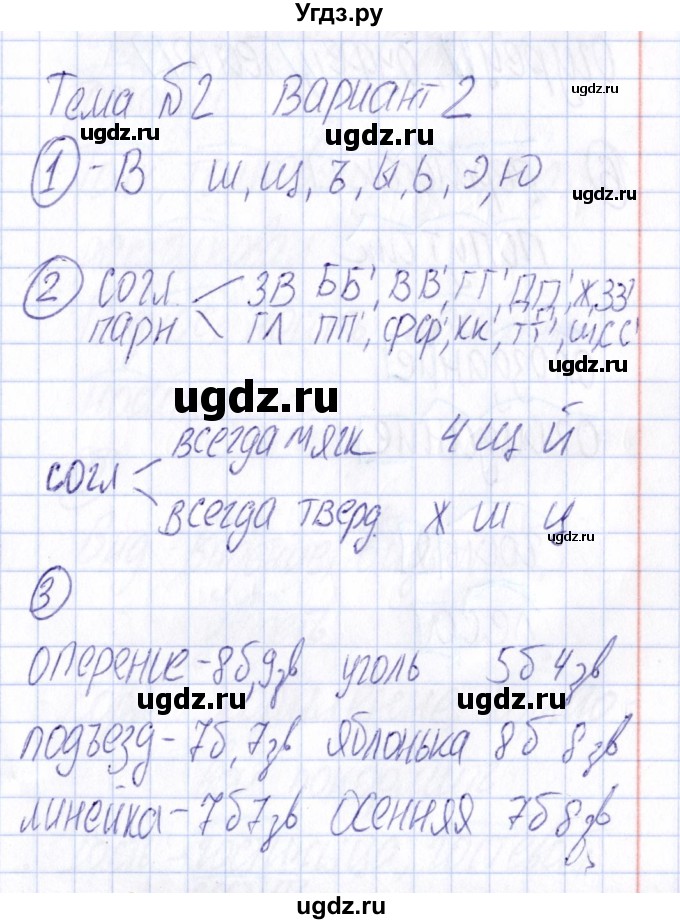 Угдз.ру
Тема №2 Вариант 2
ugdz.ru
ugdz.ru
ugdz.ru
① - В ш, щ, ъ, ы, ь, э, ю
ugdz.ru
② согл ЗВ ББ', ВВ', ГГ', ДД', Ж, ЗЗ'
парн ГЛ ПП', ФФ', КК', ТТ', Ш, СС'
ugdz.ru
ugdz.ru
ugdz.ru
всегда мягк ч щ й
ugdz.ru
согл
всегда тверд. ж ш ц
ugdz.ru
ugdz.ru
③
оперение - 8б, 9зв уголь 5б 4зв
ugdz.ru
ugdz.ru
подъезд - 7б, 7зв яблонька 8б 8зв
ugdz.ru
ugdz.ru
линейка - 7б 7зв осенняя 7б 8зв
ugdz.ru
ugdz.ru